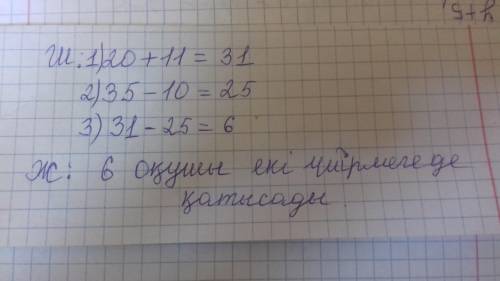 у+5
Ш: 1) 20 + 11 = 31
2) 35 - 10 = 25
3) 31 - 25 = 6
Ж: 6 оқушы екі үйірмегеде
қатысады.